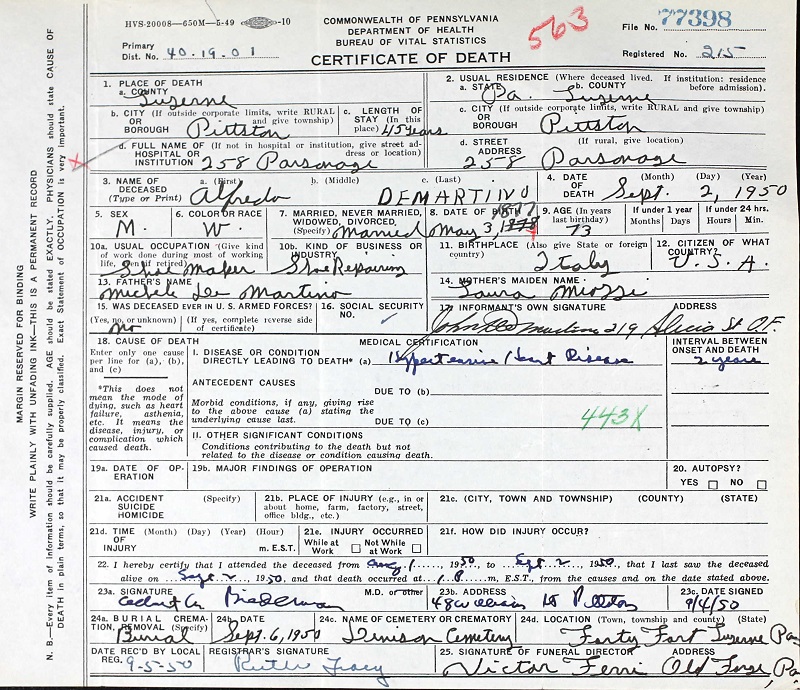 HVS-20008—650M—5-49 -10
COMMONWEALTH OF PENNSYLVANIA
DEPARTMENT OF HEALTH
BUREAU OF VITAL STATISTICS
CERTIFICATE OF DEATH
563
File No. 77398
Primary
Dist. No. 40.19.01
Registered No. 215
1. PLACE OF DEATH
a. COUNTY
Luzerne
2. USUAL RESIDENCE (Where deceased lived. If institution: residence before admission).
a. STATE Pa. b. COUNTY Luzerne
b. CITY (If outside corporate limits, write RURAL
OR and give township)
BOROUGH Pittston
c. LENGTH OF
STAY (In this
place) 45 years
c. CITY (If outside corporate limits, write RURAL and give township)
OR
BOROUGH Pittston
d. FULL NAME OF (If not in hospital or institution, give street ad-
HOSPITAL OR dress or location)
INSTITUTION 258 Parsonage
d. STREET (If rural, give location)
ADDRESS 258 Parsonage
3. NAME OF
DECEASED
(Type or Print)
a. (First) b. (Middle) c. (Last)
Alfredo DEMARTINO
4. DATE (Month) (Day) (Year)
OF
DEATH Sept. 2, 1950
5. SEX
M.
6. COLOR OR RACE
W.
7. MARRIED, NEVER MARRIED,
WIDOWED, DIVORCED,
(Specify) Married
8. DATE OF BIRTH
1877
May 3, 1878
9. AGE (In years
last birthday)
73
If under 1 year
Months Days
If under 24 hrs.
Hours Min.
10a. USUAL OCCUPATION (Give kind
of work done during most of working
life, even if retired)
Shoe Maker
10b. KIND OF BUSINESS OR
INDUSTRY
Shoe Repairing
11. BIRTHPLACE (Also give State or foreign
country)
Italy
12. CITIZEN OF WHAT
COUNTRY?
U.S.A.
13. FATHER'S NAME
Michele De Martino
14. MOTHER'S MAIDEN NAME
Laura
15. WAS DECEASED EVER IN U. S. ARMED FORCES?
(Yes, no, or unknown) (If yes, complete reverse side
of certificate)
no
16. SOCIAL SECURITY
NO.
17. INFORMANT'S OWN SIGNATURE ADDRESS
John De Martino 219 Alicia St O.F.
18. CAUSE OF DEATH
Enter only one cause
per line for (a), (b),
and (c)
*This does not
mean the mode of
dying, such as heart
failure, asthenia,
etc. It means the
disease, injury, or
complication which
caused death.
MEDICAL CERTIFICATION
I. DISEASE OR CONDITION
DIRECTLY LEADING TO DEATH* (a) Hypertensive Heart Disease
INTERVAL BETWEEN
ONSET AND DEATH
2 years
ANTECEDENT CAUSES
Morbid conditions, if any, giving rise
to the above cause (a) stating the
underlying cause last.
DUE TO (b)
DUE TO (c)
443X
II. OTHER SIGNIFICANT CONDITIONS
Conditions contributing to the death but not
related to the disease or condition causing death.
19a. DATE OF OP-
ERATION
19b. MAJOR FINDINGS OF OPERATION
20. AUTOPSY?
YES NO
21a. ACCIDENT (Specify)
SUICIDE
HOMICIDE
21b. PLACE OF INJURY (e.g., in or
about home, farm, factory, street,
office bldg., etc.)
21c. (CITY, TOWN AND TOWNSHIP) (COUNTY) (STATE)
21d. TIME (Month) (Day) (Year) (Hour)
OF
INJURY m. E.S.T.
21e. INJURY OCCURRED
While at Work Not While at Work
21f. HOW DID INJURY OCCUR?
22. I hereby certify that I attended the deceased from Aug 1, 1950, to Sept 2, 1950, that I last saw the deceased
alive on Sept 2, 1950, and that death occurred at 1 P m., E.S.T., from the causes and on the date stated above.
23a. SIGNATURE M.D. or other
23b. ADDRESS
48 William St Pittston
23c. DATE SIGNED
9/4/50
24a. BURIAL, CREMA-
TION, REMOVAL (Specify)
Burial
24b. DATE
Sept. 6, 1950
24c. NAME OF CEMETERY OR CREMATORY
Denison Cemetery
24d. LOCATION (Town, township and county) (State)
Forty Fort Luzerne Pa
DATE REC'D BY LOCAL
REG. 9-5-50
REGISTRAR'S SIGNATURE
Ruth Tracy
25. SIGNATURE OF FUNERAL DIRECTOR ADDRESS
Victor Ferri Old Forge, Pa.
MARGIN RESERVED FOR BINDING
WRITE PLAINLY WITH UNFADING INK—THIS IS A PERMANENT RECORD
N. B.—Every item of information should be carefully supplied. AGE should be stated EXACTLY. PHYSICIANS should state CAUSE OF
DEATH in plain terms, so that it may be properly classified. Exact Statement of OCCUPATION is very important.